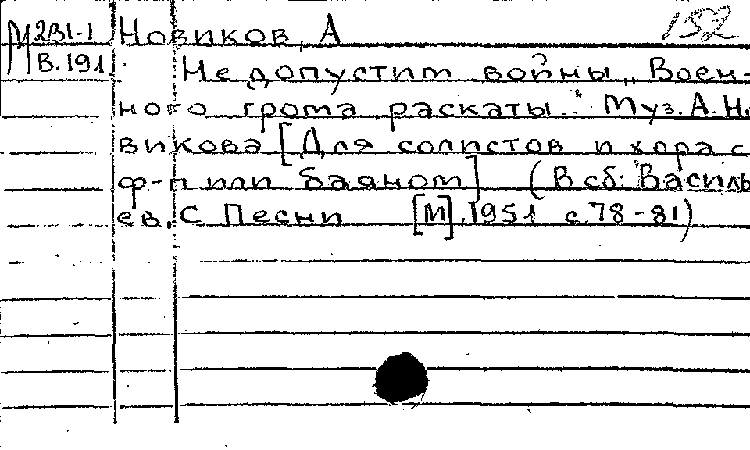 М 2В1-1 Новиков, А 152
В.191 Не допустим войны „Воен-
ного грома раскаты.." Муз. А. Но
викова [Для солистов и хора с
ф-п или баяном] (В сб: Василь
ев, С Песни [М], 1951 с. 78-81)